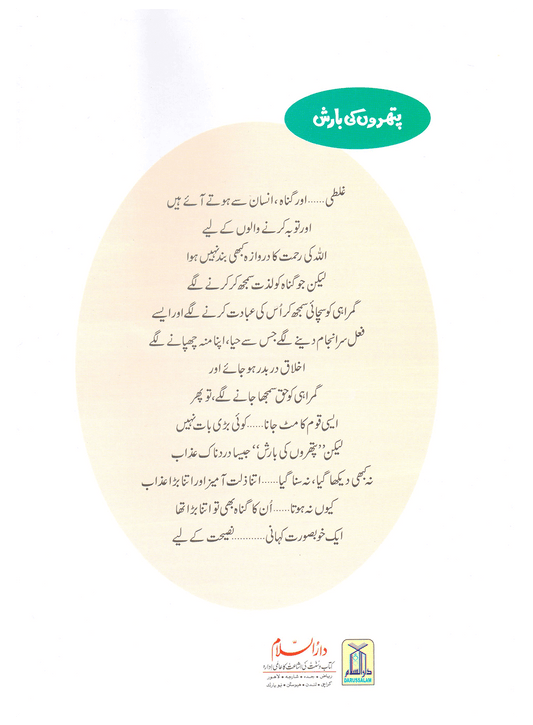 پتھروں کی بارش
غلطی......اور گناہ، انسان سے ہوتے آئے ہیں
اور توبہ کرنے والوں کے لیے
اللہ کی رحمت کا دروازہ کبھی بند نہیں ہوا
لیکن جو گناہ کو لذت سمجھ کر کرنے لگے
گمراہی کو سچائی سمجھ کر اُس کی عبادت کرنے لگے اور ایسے
فعل سرانجام دینے لگے جس سے حیا، اپنا منہ چھپانے لگے
اخلاق دربدر ہو جائے اور
گمراہی کو حق سمجھا جانے لگے، تو پھر
ایسی قوم کا مٹ جانا......کوئی بڑی بات نہیں
لیکن ”پتھروں کی بارش“ جیسا دردناک عذاب
نہ کبھی دیکھا گیا، نہ سنا گیا......اتنا ذلت آمیز اور اتنا بڑا عذاب
کیوں نہ ہوتا......اُن کا گناہ بھی تو اتنا بڑا تھا
ایک خوبصورت کہانی............نصیحت کے لیے
دارالسلام
کتاب و سنت کی اشاعت کا عالمی ادارہ
ریاض • جدہ • شارجہ • لاہور
کراچی • لندن • ہیوسٹن • نیو یارک
دارالسلام
DARUSSALAM